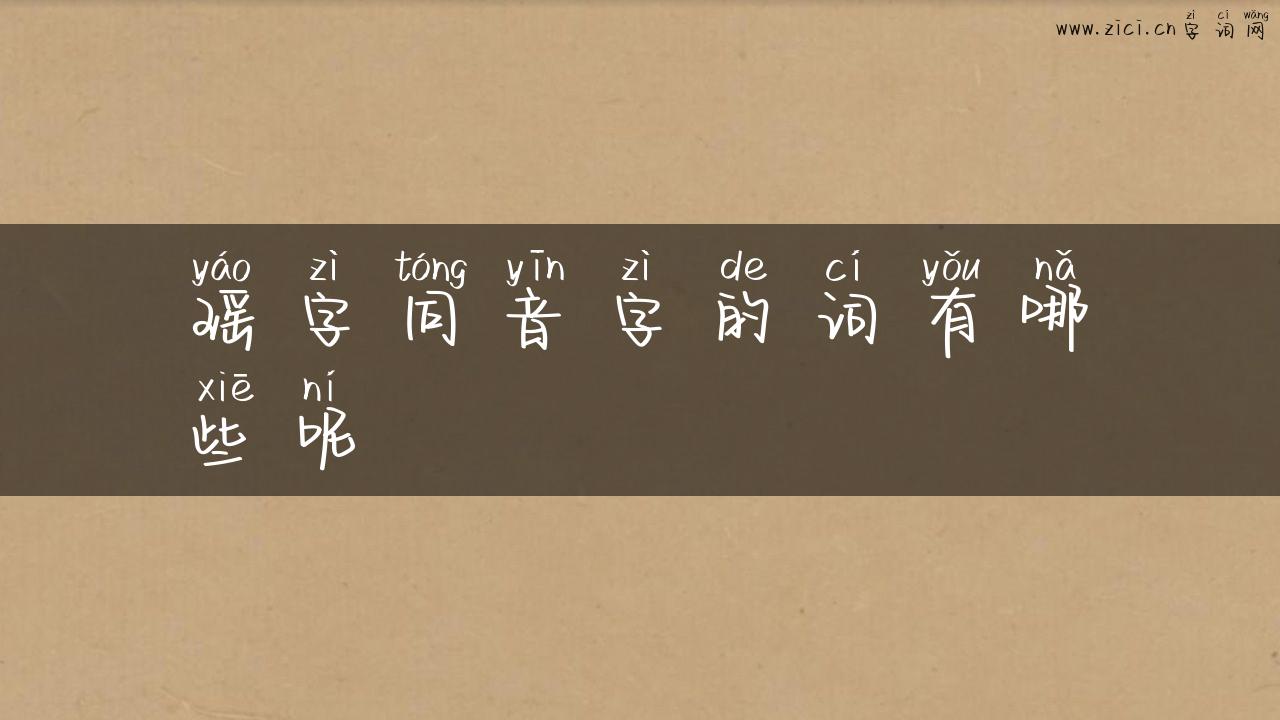 zì cí wǎng
www.zici.cn 字 词 网
yáo zì tóng yīn zì de cí yǒu nǎ
瑶 字 同 音 字 的 词 有 哪
xiē ní
些 呢